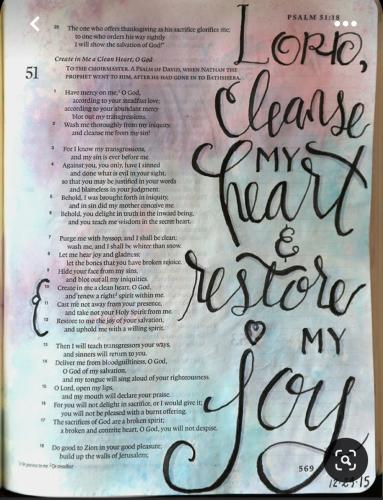 PSALM 51:18
23 The one who offers thanksgiving as his sacrifice glorifies me;
to one who orders his way rightly
I will show the salvation of God!"
Create in Me a Clean Heart, O God
51 TO THE CHOIRMASTER. A PSALM OF DAVID, WHEN NATHAN THE
PROPHET WENT TO HIM, AFTER HE HAD GONE IN TO BATHSHEBA.
1 Have mercy on me, O God,
according to your steadfast love;
according to your abundant mercy
blot out my transgressions.
2 Wash me thoroughly from my iniquity,
and cleanse me from my sin!
3 For I know my transgressions,
and my sin is ever before me.
4 Against you, you only, have I sinned
and done what is evil in your sight,
so that you may be justified in your words
and blameless in your judgment.
5 Behold, I was brought forth in iniquity,
and in sin did my mother conceive me.
6 Behold, you delight in truth in the inward being,
and you teach me wisdom in the secret heart.
7 Purge me with hyssop, and I shall be clean;
wash me, and I shall be whiter than snow.
8 Let me hear joy and gladness;
let the bones that you have broken rejoice.
9 Hide your face from my sins,
and blot out all my iniquities.
10 Create in me a clean heart, O God,
and renew a right spirit within me.
11 Cast me not away from your presence,
and take not your Holy Spirit from me.
12 Restore to me the joy of your salvation,
and uphold me with a willing spirit.
13 Then I will teach transgressors your ways,
and sinners will return to you.
14 Deliver me from bloodguiltiness, O God,
O God of my salvation,
and my tongue will sing aloud of your righteousness.
15 O Lord, open my lips,
and my mouth will declare your praise.
16 For you will not delight in sacrifice, or I would give it;
you will not be pleased with a burnt offering.
17 The sacrifices of God are a broken spirit;
a broken and contrite heart, O God, you will not despise.
18 Do good to Zion in your good pleasure;
build up the walls of Jerusalem;
LORD,
Cleanse
MY
heart
&
restore
MY
joy
569